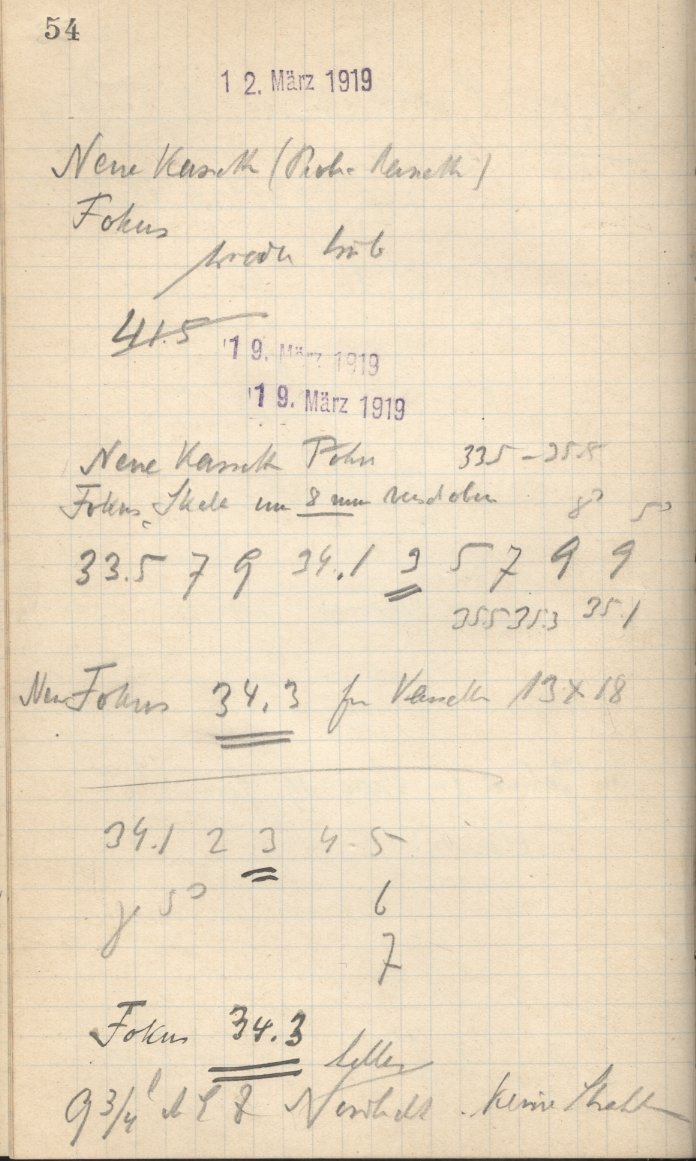 54
12. März 1919
Neue Kassette (Probe Kassette)
Fokus
trüb
41.5
19. März 1919
19. März 1919
Neue Kassette 33.5 – 35.5
Fokus Skala um 8 mm verschoben
33.5 7 9 34.1 3 5 7 9 9
35.5 35.3 35.1
Neu Fokus 34.3 für Kassette 13 x 18
34.1 2 3 4 5
6
7
Fokus 34.3
9 3/4 keine